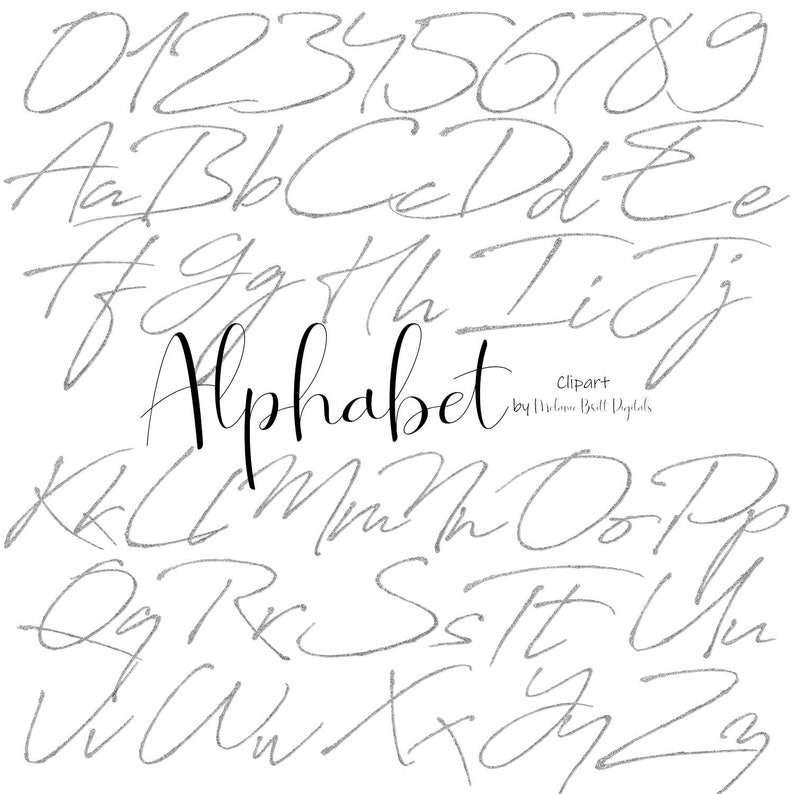 0123456789
AaBbCcDdEe
FfGgHhIiJj
Alphabet
Clipart
by Melanie Britt Digitals
KkLlMmNnOoPp
QqRrSsTtUu
VvWwXxYyZz